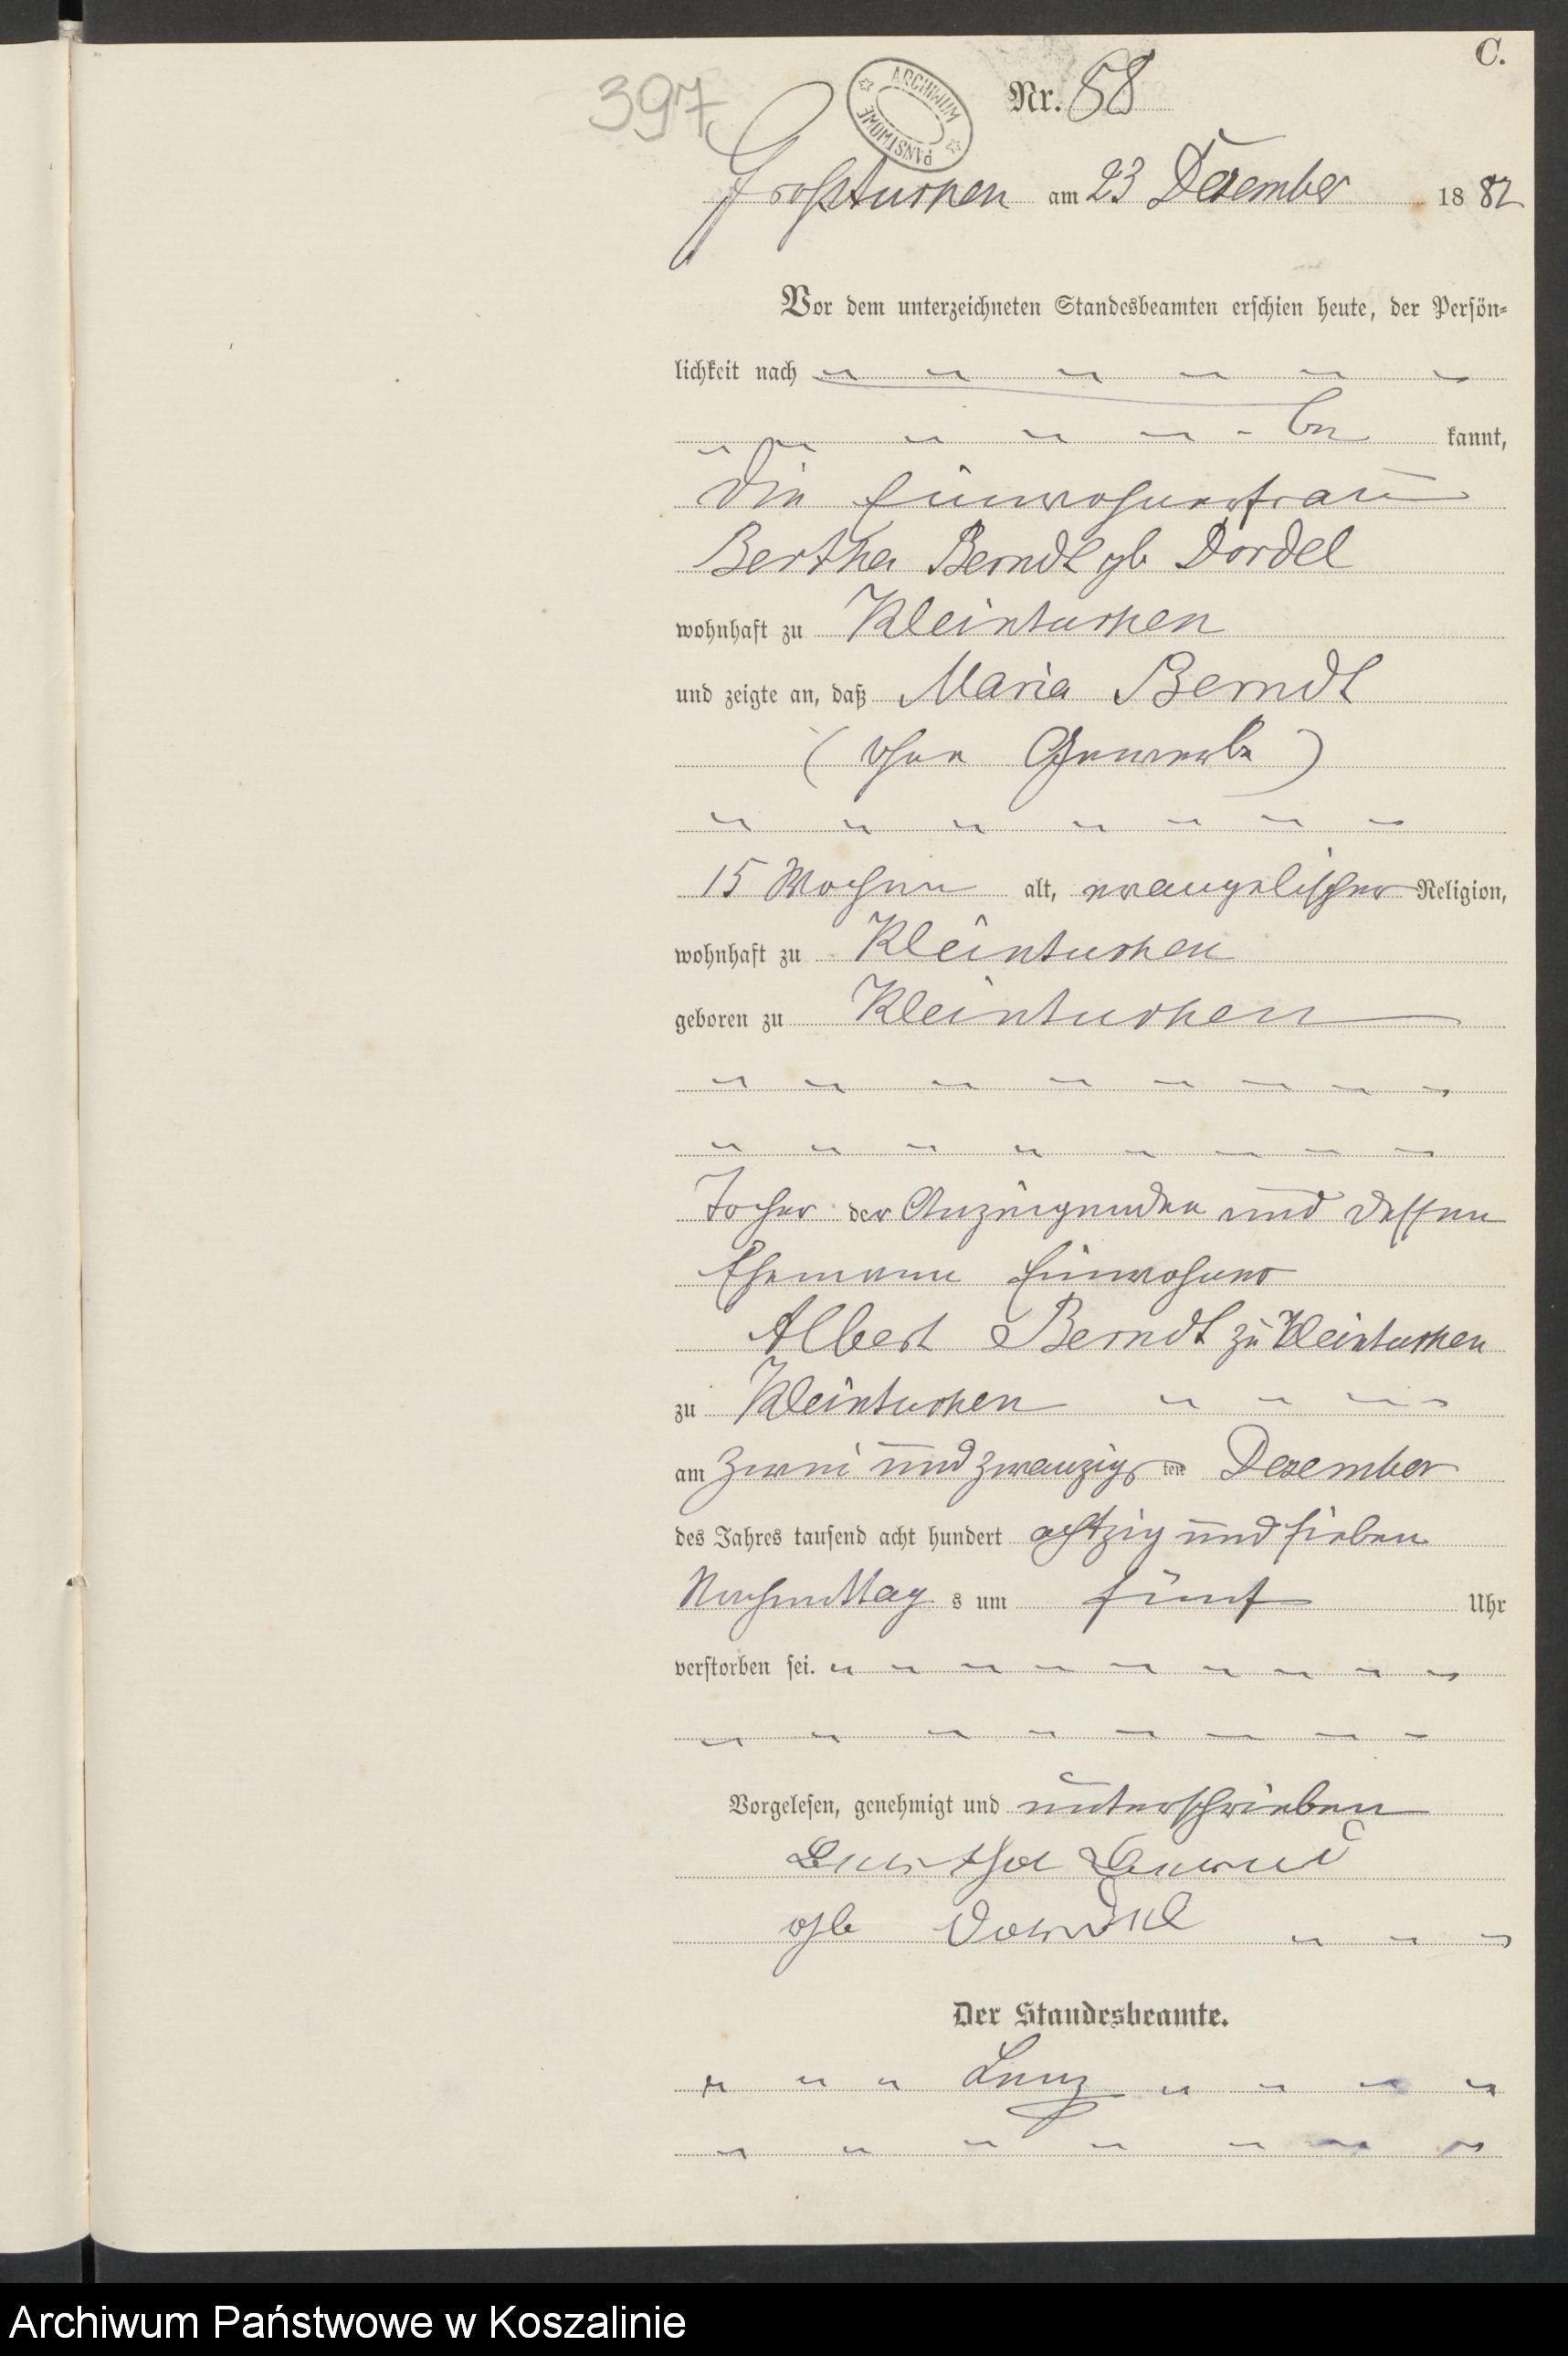 C.
397
ARCHIWUM PAŃSTWOWE
Nr. 58
Großtuchen am 23 Dezember 1887
Vor dem unterzeichneten Standesbeamten erschien heute, der Persön-
lichkeit nach
be kannt,
die Einwohnerfrau
Bertha Berndt gb Dordel
wohnhaft zu Kleintuchen
und zeigte an, daß Maria Berndt
(ohne Gewerbe)
15 Wochen alt, evangelischer Religion,
wohnhaft zu Kleintuchen
geboren zu Kleintuchen
Tocher der Anzeigenden und dessen
Ehemann Einwohner
Albert Berndt zu Kleintuchen
zu Kleintuchen
am zwei und zwanzigsten Dezember
des Jahres tausend acht hundert achtzig und sieben
Nachmittags um fünf Uhr
verstorben sei.
Vorgelesen, genehmigt und unterschrieben
Bertha
gb Dordel
Der Standesbeamte.
Archiwum Państwowe w Koszalinie